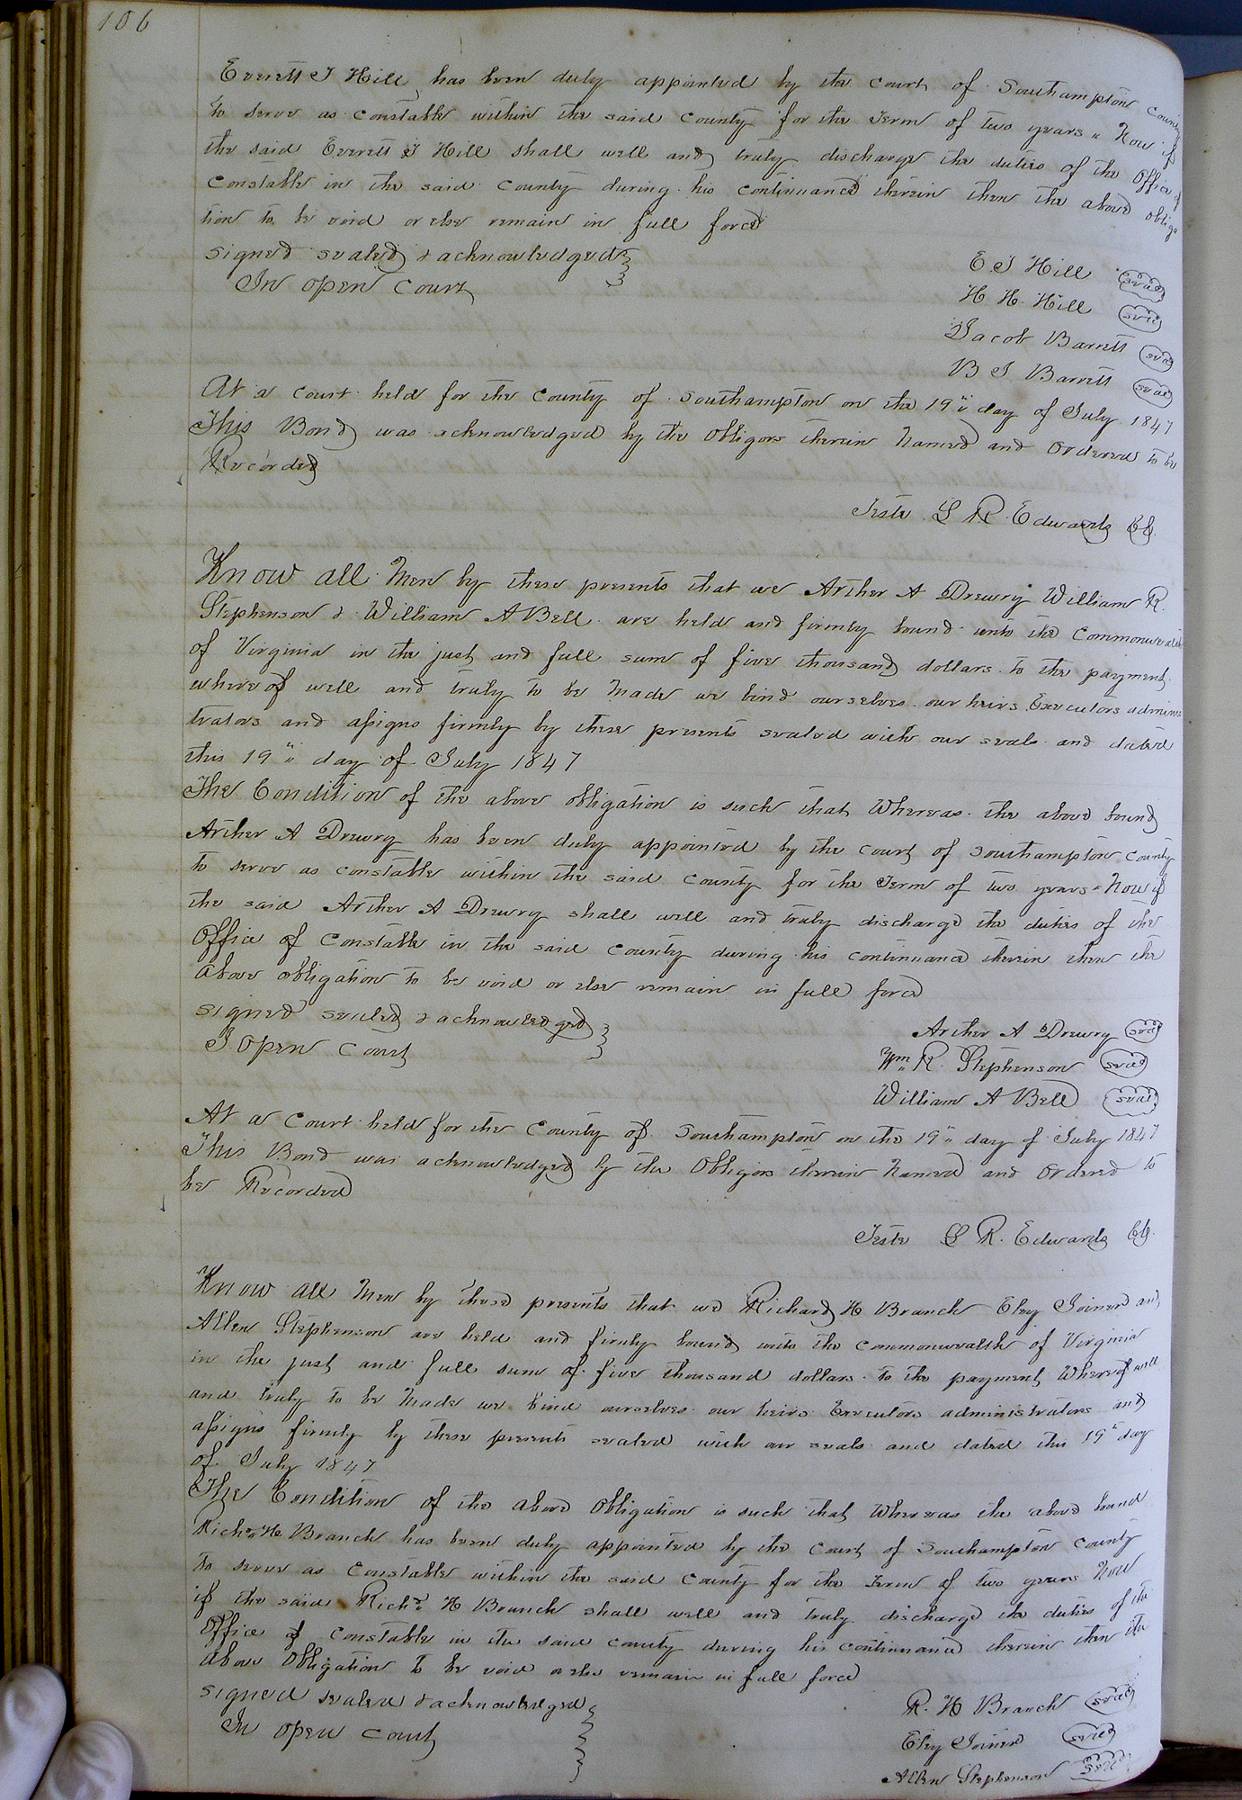 106
Everett J Hill has been duly appointed by the Court of Southampton County
to serve as constable within the said County for the Term of two years " Now if
the said Everett J Hill shall well and truly discharge the duties of the Office of
Constable in the said County during his continuance therein then the above obliga
tion to be void or else remain in full force
signed sealed & acknowledged
In open Court
E J Hill seal
H H Hill seal
Jacob Barrett seal
B J Barrett seal
At a Court held for the County of Southampton on the 19" day of July 1847
This Bond was acknowledged by the Obligors therein Named and Ordered to be
Recorded
Teste L R Edwards Ck
Know all Men by these presents that we Archer A Drewry William R.
Stephenson & William A Bell are held and firmly bound unto the Commonwealth
of Virginia in the just and full sum of five thousand dollars to the payment
whereof well and truly to be Made we bind ourselves our heirs Executors adminis
trators and assigns firmly by these presents sealed with our seals and dated
this 19" day of July 1847
The Condition of the above obligation is such that Whereas the above bound
Archer A Drewry has been duly appointed by the Court of Southampton County
to serve as constable within the said County for the Term of two years " Now if
the said Archer A Drewry shall well and truly discharge the duties of the
Office of Constable in the said County during his continuance therein then the
above obligation to be void or else remain in full force
signed sealed & acknowledged
I open Court
Archer A Drewry seal
Wm R. Stephenson seal
William A Bell seal
At a Court held for the County of Southampton on the 19" day of July 1847
This Bond was acknowledged by the Obligors therein Named and Ordered to
be Recorded
Teste L R. Edwards Ck.
Know all Men by these presents that we Richard H Branch Eley Joiner and
Allen Stephenson are held and firmly bound unto the Commonwealth of Virginia
in the just and full sum of five thousand dollars to the payment Whereof well
and truly to be Made we bind ourselves our heirs Executors administrators and
assigns firmly by these presents sealed with our seals and dated this 19" day
of July 1847
The Condition of the above Obligation is such that Whereas the above bound
Richd H Branch has been duly appointed by the Court of Southampton County
to serve as Constable within the said County for the Term of two years Now
if the said Richd H Branch shall well and truly discharge the duties of the
Office of Constable in the said County during his continuance therein then the
above Obligation to be void or else remain in full force
signed sealed & acknowledged
In open Court
R. H Branch seal
Eley Joiner seal
Allen Stephenson seal